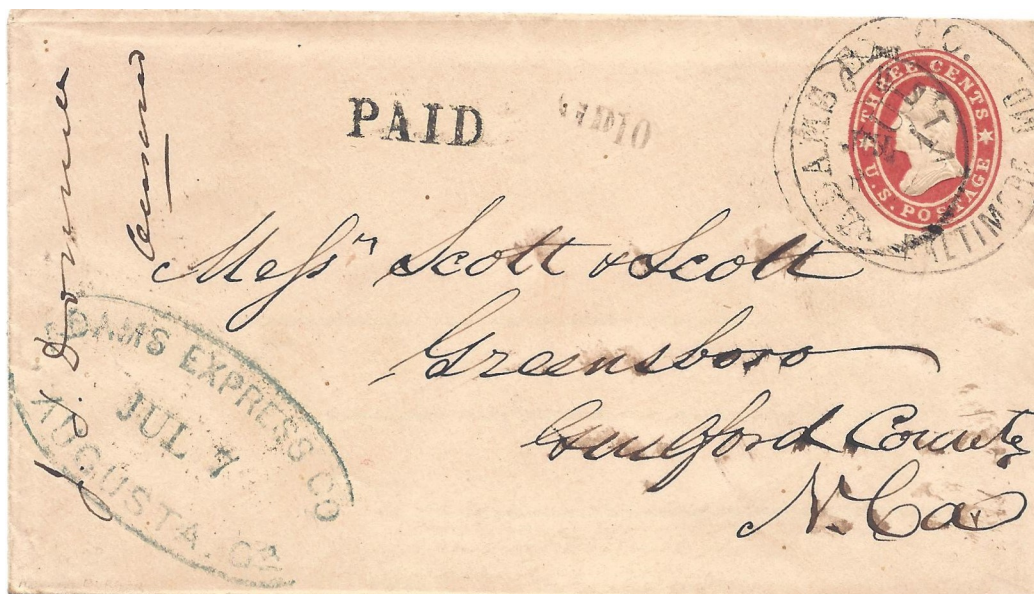 PAID
ADAMS EX. CO.
BALTIMORE
THREE CENTS
U.S. POSTAGE
Messrs Scott & Scott
Greensboro
Guilford County
N. Ca
ADAMS EXPRESS CO
JUL 7
AUGUSTA, Ga